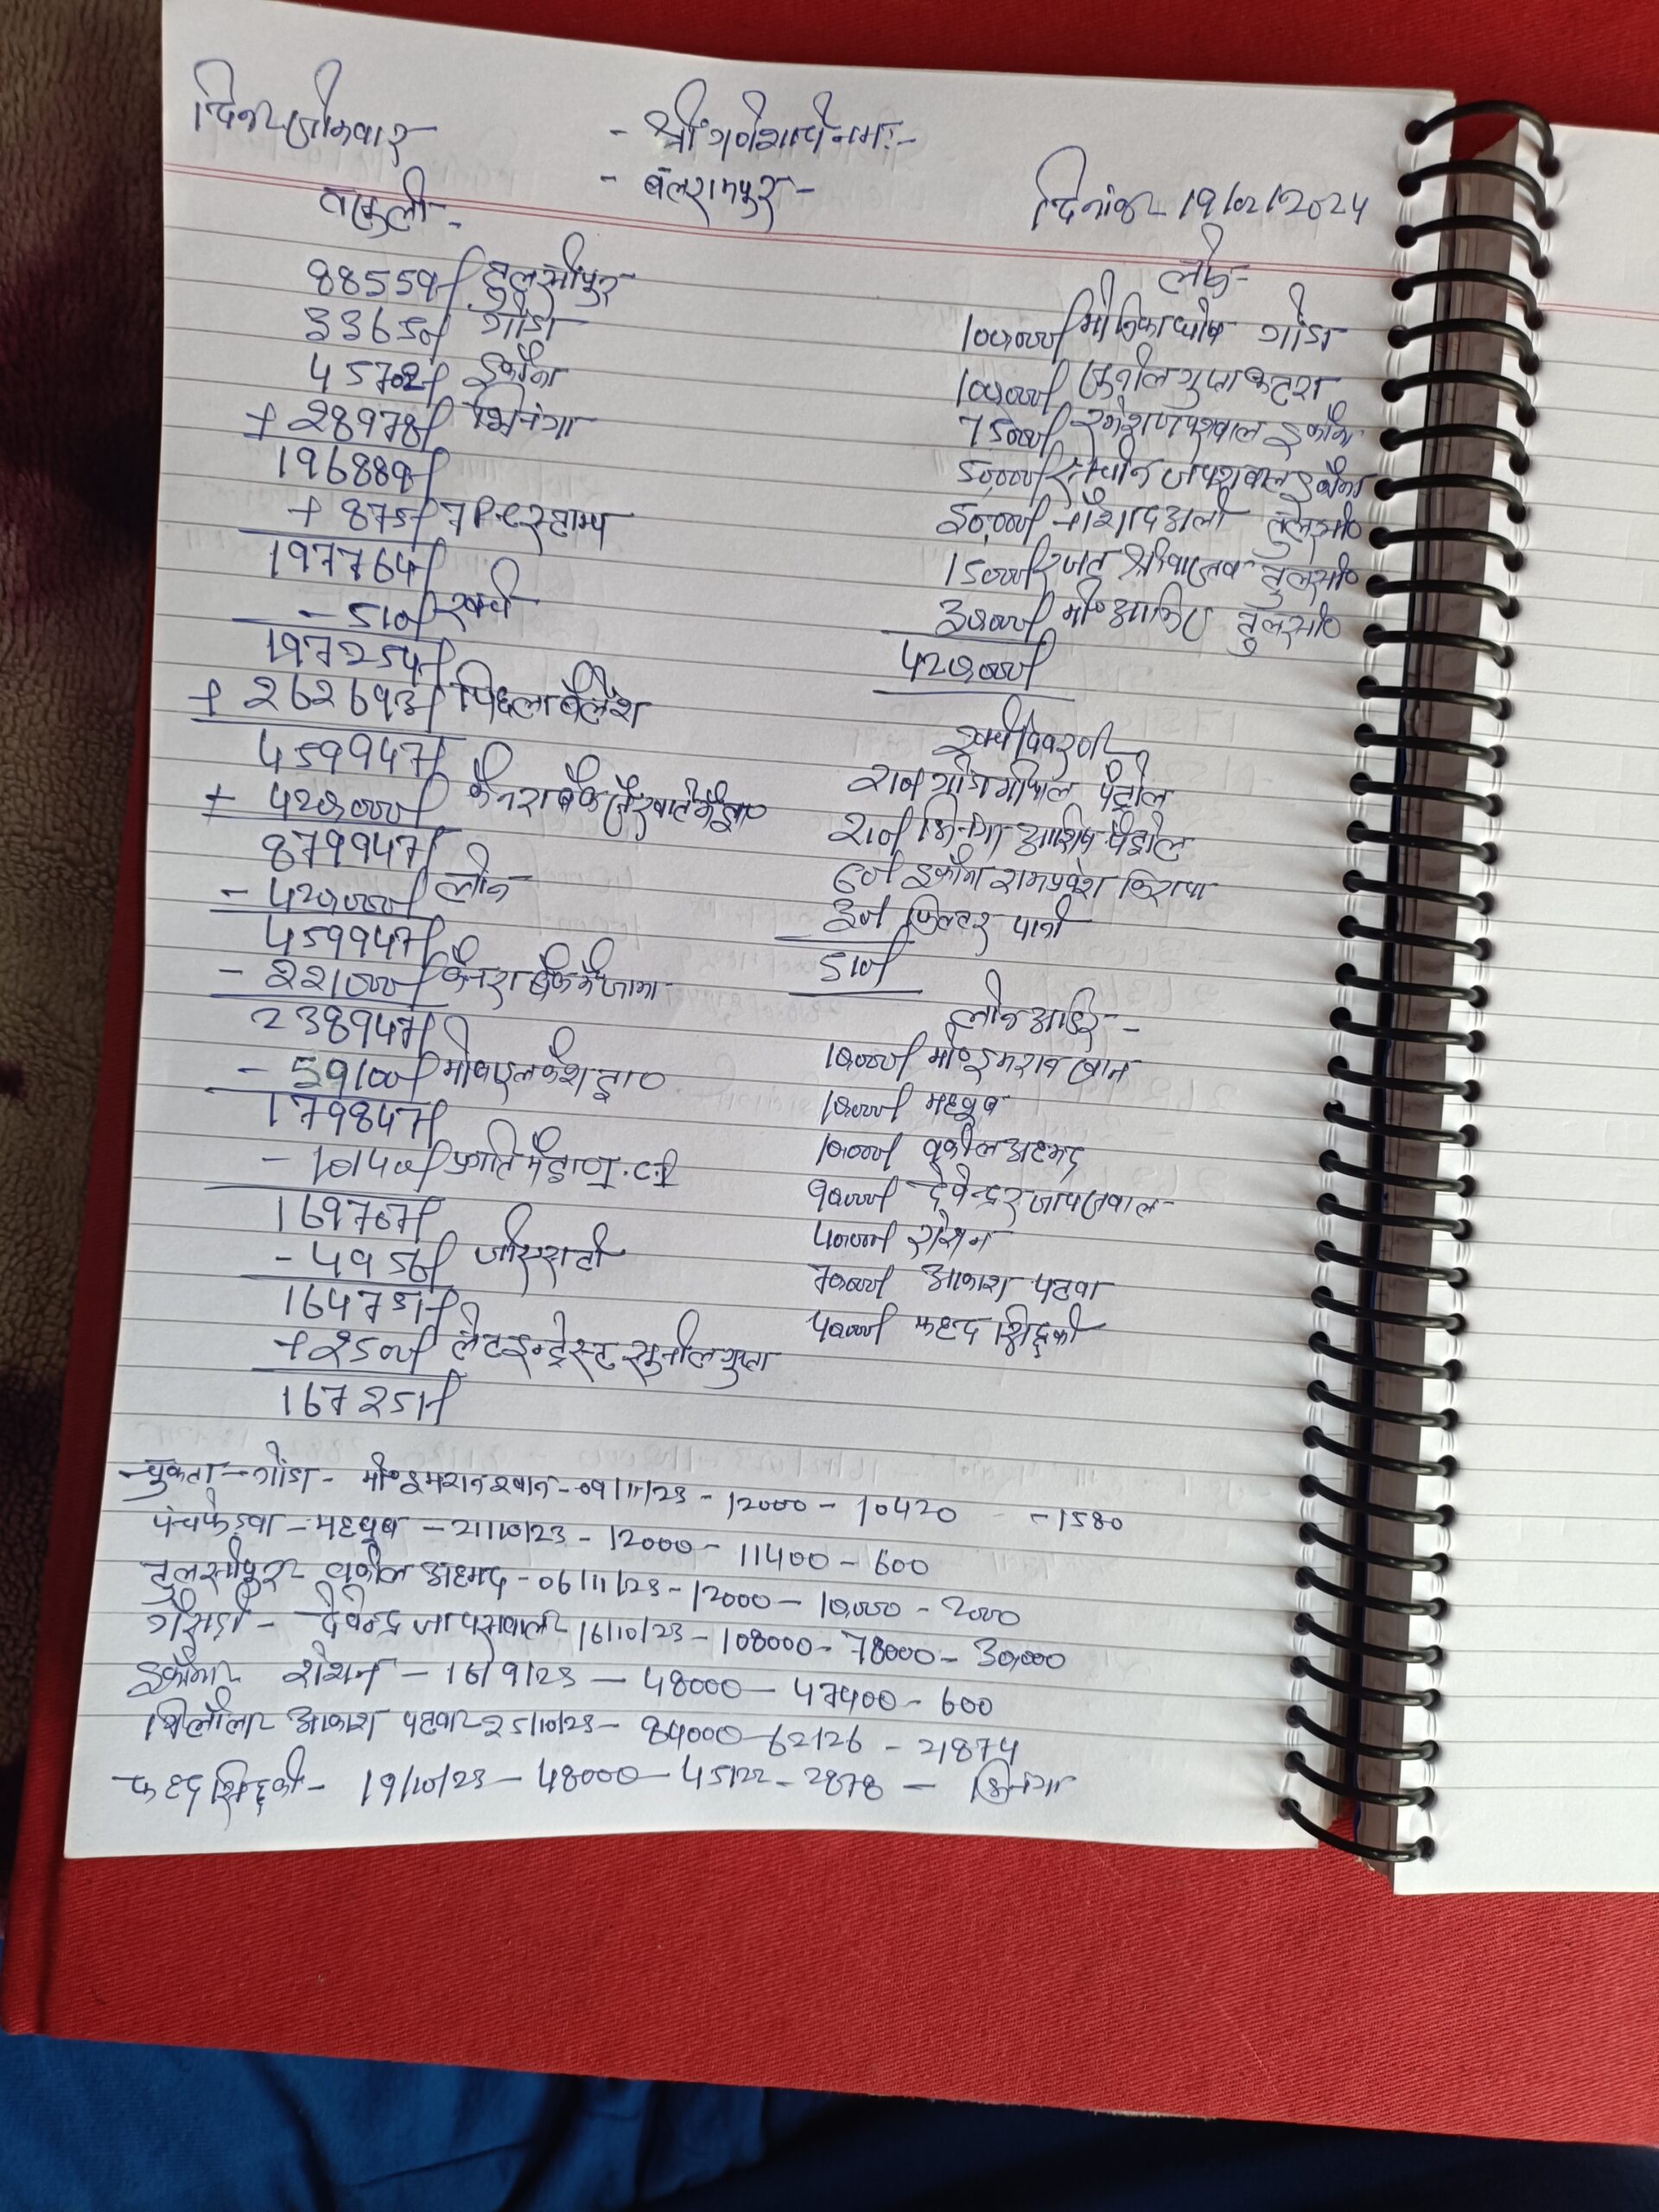 दिन सोमवार
- श्री गणेशाय नमः -
- बलरामपुर -
दिनांक 19/02/2024
वसूली -
88559/- तुलसीपुर
33650/- गोंडा
45702/- इकौना
+ 28978/- भिनगा
196889/-
+ 875/- 7 P.C स्टाम्प
197764/-
- 510/- खर्च
197254/-
+ 262693/- पिछला बैलेंश
459947/-
+ 420,000/- कैनरा बैंक
879947/-
- 420,000/- लोन
459947/-
- 221000/- कैनरा बैंक में जमा
238947/-
- 59100/- कैश
179847/-
- 10140/- प्रगति
169707/-
- 4956/-
164751/-
+ 2500/- लेट इन्ट्रेस्ट सुनील गुप्ता
167251/-
लोन -
100,000/- गोंडा
100,000/- सुनील गुप्ता कटरा
75000/- रमेश जायसवाल इकौना
50,000/- जायसवाल इकौना
50,000/- नौशाद अली तुलसी०
15000/- रजत श्रीवास्तव तुलसी०
30,000/- मो० तुलसी०
420,000/-
खर्च विवरण
200/- गोंडा गोपाल पेट्रोल
220/- भिनगा आशिष पेट्रोल
60/- इकौना रामप्रवेश किराया
30/- फिल्टर पानी
510/-
लोन आर्डर -
10,000/- मो० इमरान खान
10,000/- महबूब
10,000/- वकील अहमद
90,000/- देवेन्द्र जायसवाल
40,000/- रोशन
70,000/- आकाश पटवा
40,000/- फहद सिद्दकी
चुकता - गोंडा - मो० इमरान खान - 09/11/23 - 12000 - 10420 - 1580
पचपेड़वा - महबूब - 21/10/23 - 12000 - 11400 - 600
तुलसीपुर - वकील अहमद - 06/11/23 - 12000 - 10,000 - 2000
गैसड़ी - देवेन्द्र जायसवाल - 16/10/23 - 108000 - 78000 - 30,000
इकौना - रोशन - 16/9/23 - 48000 - 47400 - 600
आकाश पटवा - 25/10/23 - 84000 - 62126 - 21874
फहद सिद्दकी - 19/10/23 - 48000 - 45122 - 2878 - भिनगा